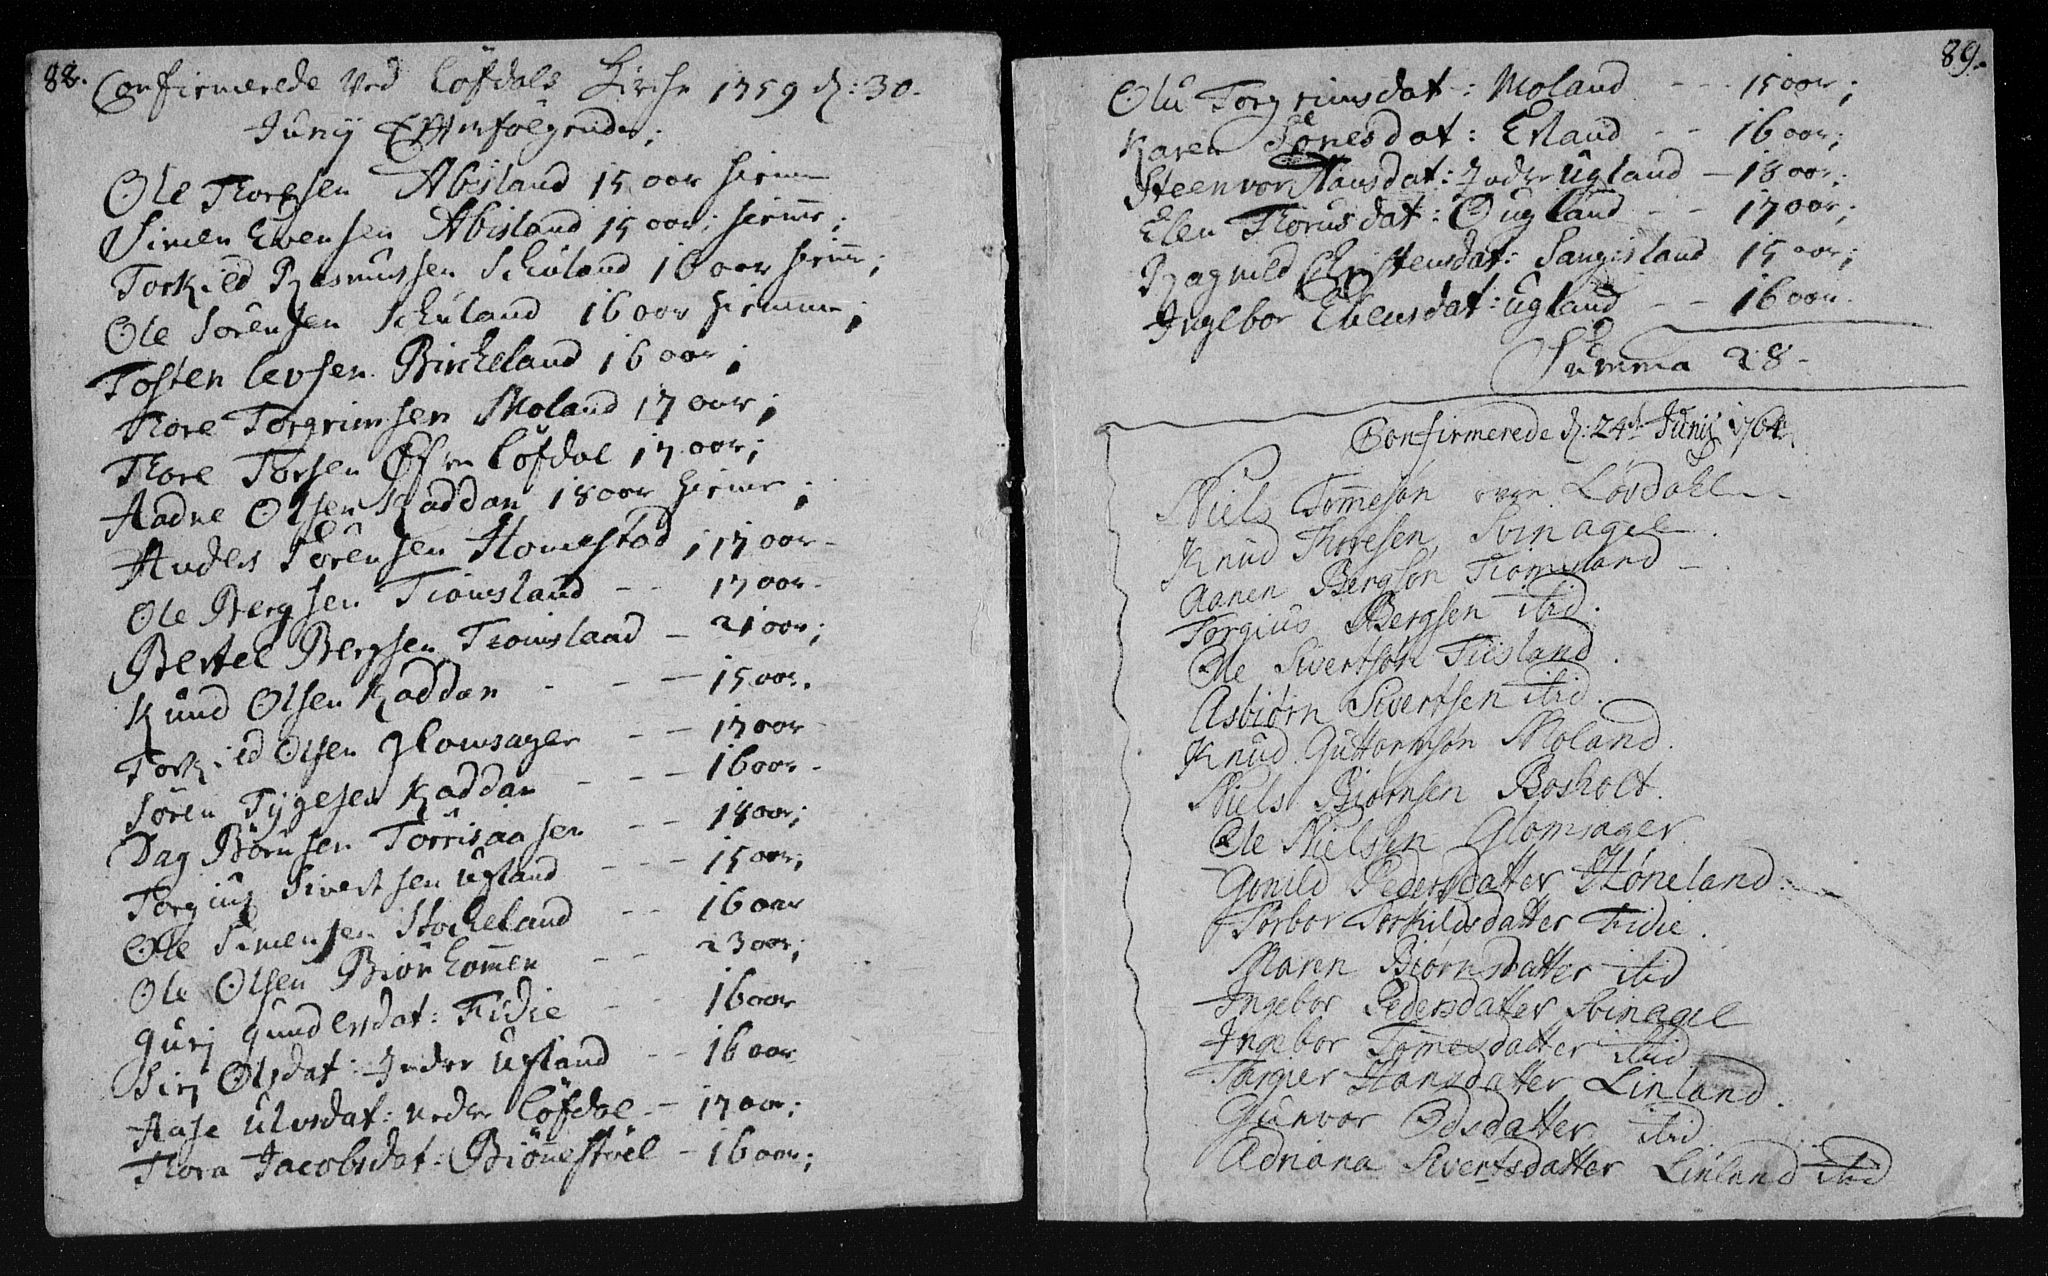 88.
Confirmerede Ved Löfdals Kirche 1759 d: 30.
Junij Efterfölgende;
Ole Thoresen Abisland 15 aar
Simen Evensen Abisland 15 aar;
Torkield Rasmussen Schuland 16 aar
Ole Sörensen Schuland 16 aar
Tosten Levsen Bircheland 16 aar;
Thore Torgrimsen Moland 17 aar;
Thore Torsen Öfre Löfdal 17 aar;
Aadne Olsen Raddan 18 aar
Anders Sörensen Homestad; 17 aar
Ole Bergsen Tiomsland - - 17 aar
Bertel Bergsen Tiomsland - 21 aar;
Knud Olsen Raddan - - - 15 aar.
Torkield Olsen Glomsager - - 17 aar
Sören Tÿgesen Raddan - - - 16 aar.
Dag Börnsen Torrisaasen - - 18 aar;
Torgius Sivertsen Ugland - - - 15 aar;
Ole Simensen Stocheland - - 16 aar
Ole Olsen Biönkomen - - 23 aar;
Gurj Gundersdat: Fidie - - 16 aar
Sirj Olsdat: Indre Ugland - - 16 aar
Aase Ulvsdat: Nedre Löfdal - 17 aar;
Thora Jacobsdat: Biönnestöel - 16 aar;
89.
Olu Torgrimsdat: Moland - - 15 aar;
Karen Tönesdat: Erland - - 16 aar;
Steenvor Hansdat: Indre Ugland - 18 aar;
Elen Thorusdat: Ougland - - 17 aar;
Ragnild Christensdat: Sangisland 15 aar;
Ingebor Evensdat: Ugland - - 16 aar.
Summa 28.
Confirmerede d: 24de Junij 1764.
Niels Tommesön Lövdahl
Knud Thoresen, Svinagel
Aanen Bergsön Tiomsland
Torgius Bergsen ibid.
Ole Sivertsön Tiisland
Asbiørn Sivertsen ibid.
Knud Guttormsøn Moland.
Niels Biørnsen Bosholt.
Ole Nielsen Glomsager.
Gonild Pedersdatter Høneland.
Torbor Torkildsdatter Fidie.
Maren Biørnsdatter ibid
Ingebor Pedersdatter Svinagel
Ingebor Tomesdatter ibid
Torger Hansdatter Linland.
Gunvor Odsdatter ibid
Adriana Sivertsdatter Linland ibid